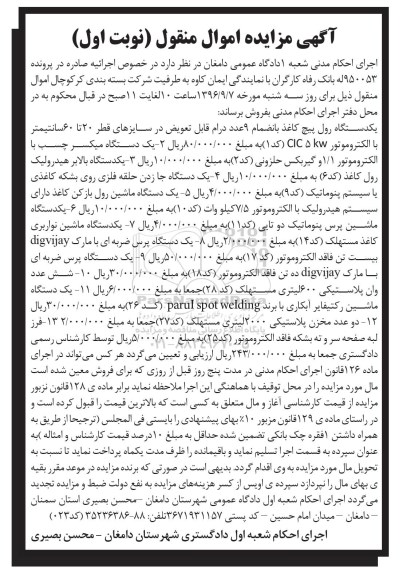 آگهی مزایده اموال منقول (نوبت اول)
اجرای احکام مدنی شعبه ۱دادگاه عمومی دامغان در نظر دارد در خصوص اجرائیه صادره در پرونده
۹۵۰۰۵۳له بانک رفاه کارگران با نمایندگی ایمان کاوه به طرفیت شرکت بسته بندی کرکوچال اموال
منقول ذیل برای روز سه شنبه مورخه ۱۳۹۶/۹/۷ساعت ۱۰لغایت ۱۱صبح در قبال محکوم به در
محل دفتر اجرای احکام مدنی بفروش برساند:
یکدستگاه رول پیچ کاغذ بانضمام ۹عدد درام قابل تعویض در سایزهای قطر ۲۰تا ۶۰سانتیمتر
با الکتروموتور CIC ۵ kw (کد۱)به مبلغ ۸۰/۰۰۰/۰۰۰ریال ۲-یک دستگاه میکسر چسب با
الکتروموتور ۱/۱و گیربکس حلزونی (کد۲)به مبلغ ۱۰/۰۰۰/۰۰۰ریال ۳-یکدستگاه بالابر هیدرولیک
رول کاغذ (کد۶) به مبلغ ۱۰/۰۰۰/۰۰۰ریال ۴-یک دستگاه جا زدن حلقه فلزی روی بشکه کاغذی
با سیستم پنوماتیک (کد۹)به مبلغ ۴/۰۰۰/۰۰۰ریال ۵-یک دستگاه ماشین رول بازکن کاغذ دارای
سیستم هیدرولیک با الکتروموتور ۷/۵کیلو وات (کد۱۰)به مبلغ ۱۰/۰۰۰/۰۰۰ریال ۶-یکدستگاه
ماشین پرس پنوماتیک دو تایی (کد۱۱)به مبلغ ۴/۰۰۰/۰۰۰ریال ۷- یکدستگاه ماشین نواربری
کاغذ مستهلک (کد۱۴)به مبلغ ۲/۰۰۰/۰۰۰ریال ۸- یک دستگاه پرس ضربه ای با مارک digvijay
بیست تن فاقد الکتروموتور (کد۱۷)به مبلغ ۵۰/۰۰۰/۰۰۰ریال ۹-یک دستگاه پرس ضربه ای
با مارک digvijay ده تن فاقد الکتروموتور (کد۱۸)به مبلغ ۳۰/۰۰۰/۰۰۰ریال ۱۰- شش عدد
وان پلاستیکی ۶۰۰لیتری مستهلک (کد۲۸)جمعا به مبلغ ۶/۰۰۰/۰۰۰ریال ۱۱- یک دستگاه
ماشین رکتیفایر آبکاری با برند parul spot welding (کد ۲۶)به مبلغ ۳۰/۰۰۰/۰۰۰ریال
۱۲- دو عدد مخزن پلاستیکی ۲۰۰۰لیتری مستهلک (کد۲۷)جمعا به مبلغ۲/۰۰۰/۰۰۰ ۱۳-فرز
لبه صفحه سر و ته بشکه فاقد الکتروموتور (کد۲۵)به مبلغ ۵/۰۰۰/۰۰۰ریال توسط کارشناس رسمی
دادگستری جمعا به مبلغ ۲۴۳/۰۰۰/۰۰۰ریال ارزیابی و تعیین می‌گردد هر کس می‌تواند در اجرای
ماده ۱۲۶قانون اجرای احکام مدنی در مدت پنج روز قبل از روزی که برای فروش معین شده است
مال مورد مزایده را در محل توقیف با هماهنگی این اجرا ملاحظه نماید برابر ماده ی ۱۲۸قانون نزبور
مزایده از قیمت کارشناسی آغاز و مال متعلق به کسی است که بالاترین قیمت را قبول کرده است و
در راستای ماده ی ۱۲۹قانون مزبور ۱۰٪بهای پیشنهادی را بایستی فی المجلس (ترجیحا از طریق به
همراه داشتن ۱فقره چک بانکی تضمین شده حداقل به مبلغ ۱۰درصد قیمت کارشناس و امثاله )به
عنوان سپرده به قسمت اجرا تسلیم نماید و باقیمانده را ظرف مدت یکماه پرداخت نماید تا نسبت به
تحویل مال مورد مزایده به وی اقدام گردد. بدیهی است در صورتی که برنده مزایده در موعد مقرر بقیه
ی بهای مال را نپردازد سپرده ی اوپس از کسر هزینه‌های مزایده به نفع دولت ضبط و مزایده تجدید
می‌گردد اجرای احکام شعبه اول دادگاه عمومی شهرستان دامغان –محسن بصیری استان سمنان
– دامغان – میدان امام حسین – کد پستی ۳۶۷۱۹۳۱۱۵۷تلفن: ۸۸-۳۵۲۳۶۳۸۶ (کد۰۲۳)
اجرای احکام شعبه اول دادگستری شهرستان دامغان - محسن بصیری